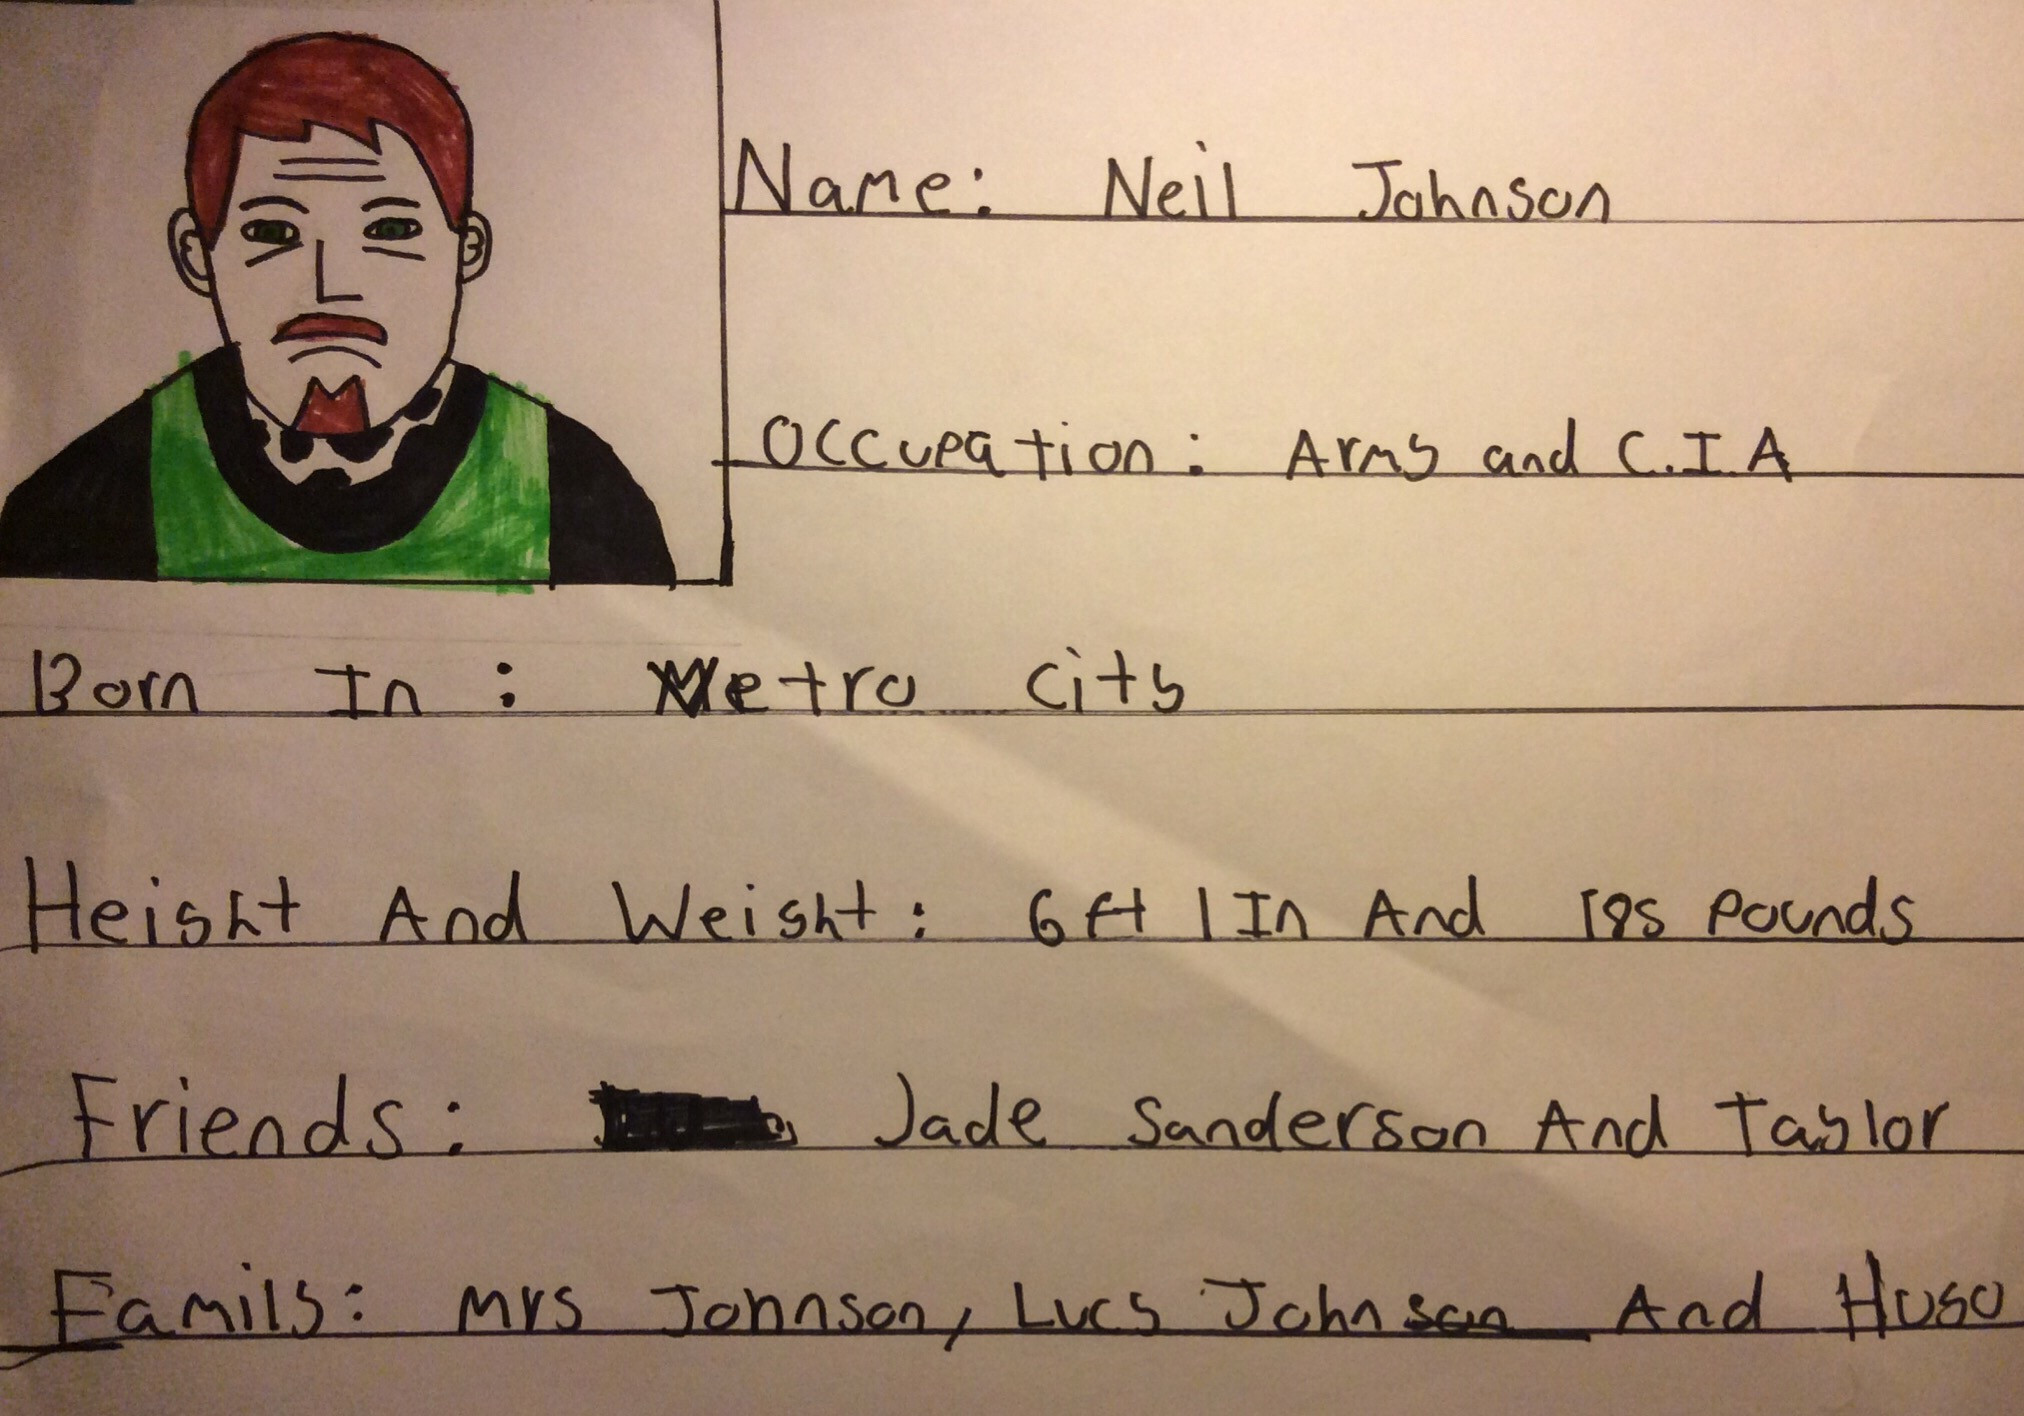 Name: Neil Johnson
Occupation: Army and C.I.A
Born In: Metro City
Height And Weight: 6 ft 1 In And 195 Pounds
Friends: Jade Sanderson And Taylor
Family: Mrs Johnson, Lucy Johnson And Hugo